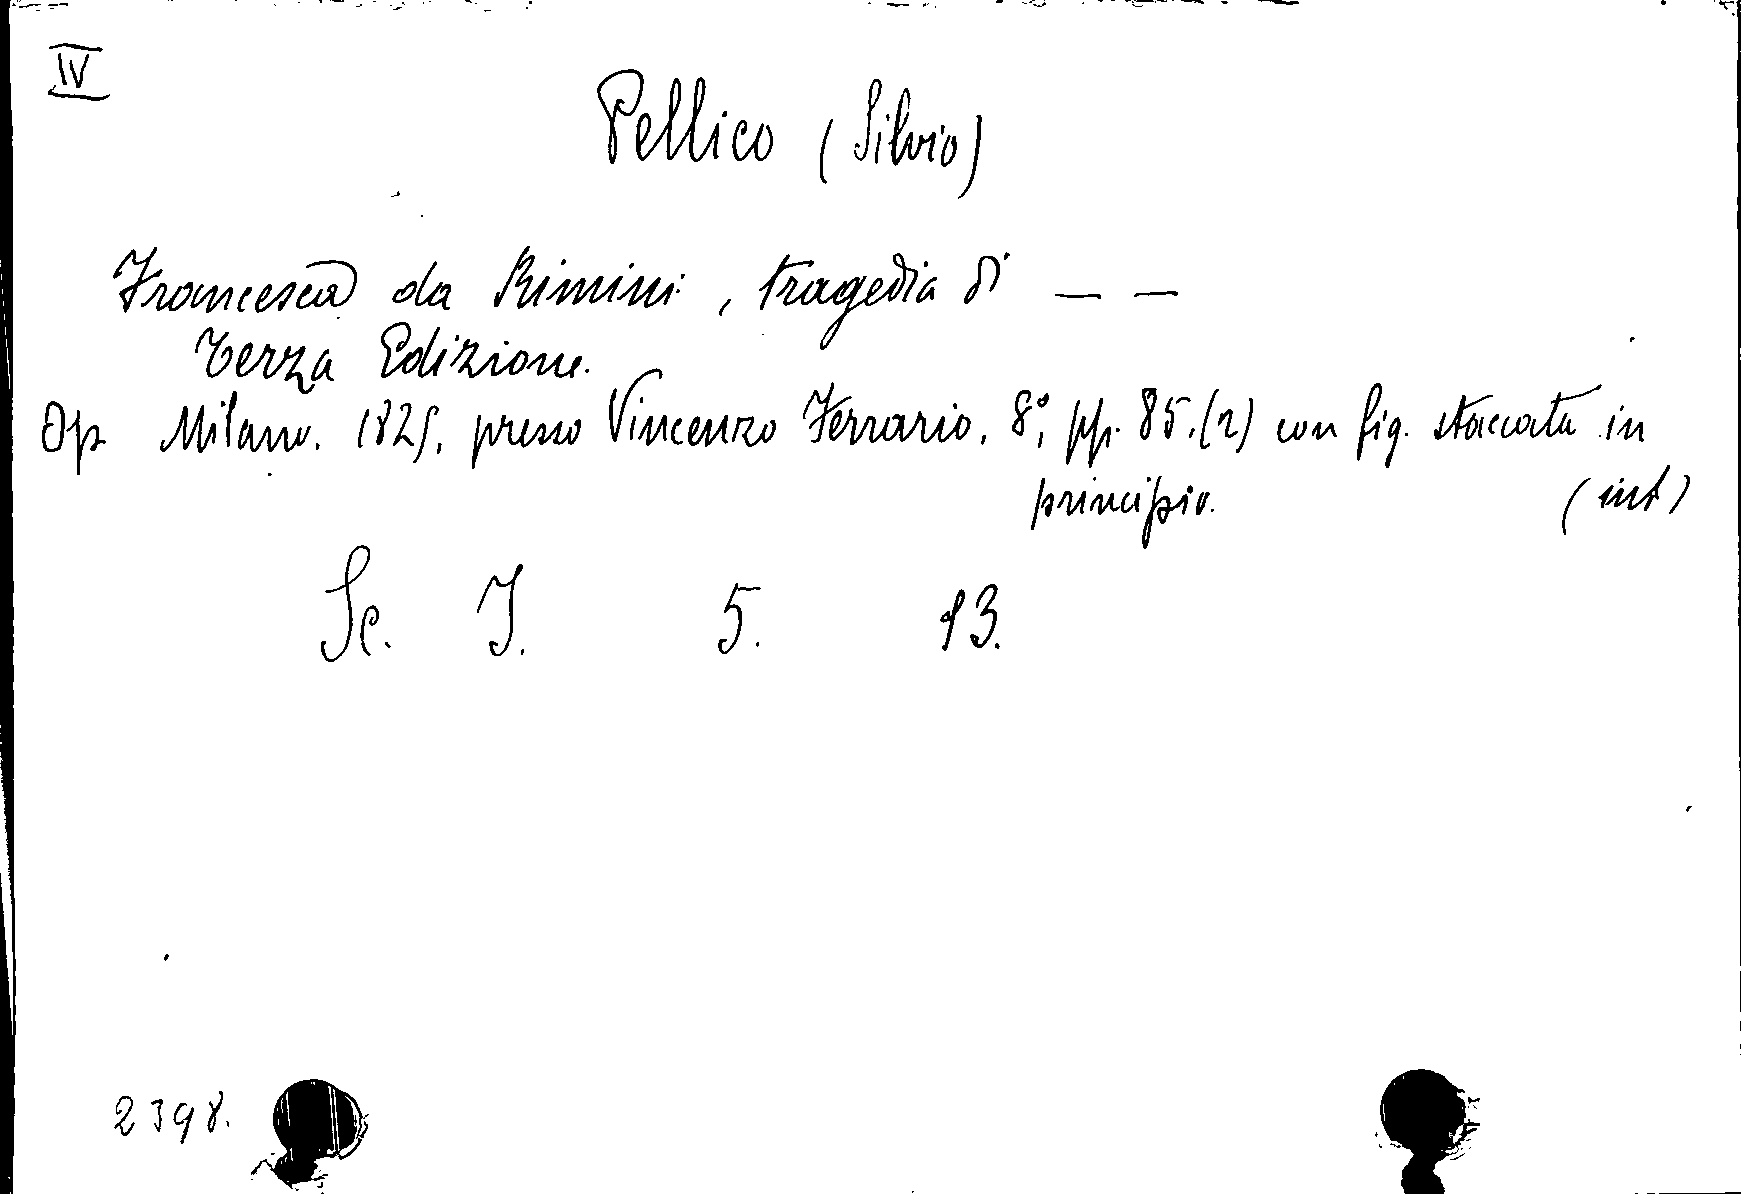 IV
Pellico (Silvio)
Francesca da Rimini, tragedia di — —
Terza Edizione.
Op Milano. 1825. presso Vincenzo Ferrario. 8°, pp. 85.(2) con fig. staccata in
principio. (int)
Sc. I. 5. 13.
2398.